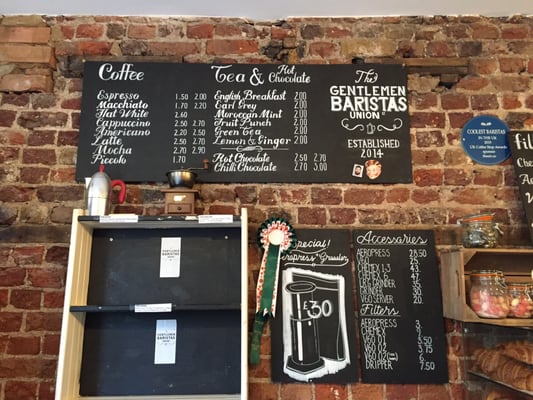 Coffee
Espresso 1.50 2.00
Macchiato 1.70 2.20
Flat White 2.60
Cappuccino 2.50 2.70
Americano 2.20 2.50
Latte 2.50 2.70
Mocha 2.70 2.90
Piccolo 1.70
Tea & Hot Chocolate
English Breakfast 2.00
Earl Grey 2.00
Moroccan Mint 2.00
Fruit Punch 2.00
Green Tea 2.00
Lemon & Ginger 2.00
Hot Chocolate 2.50 2.70
Chili Chocolate 2.70 3.00
The
GENTLEMEN
BARISTAS
UNION
ESTABLISHED
2014
COOLEST BARISTAS
IN THE UK
2015
Special!
Aeropress & Grinder
£30
Accessories
AEROPRESS 28.50
V60
CHEMEX
GRINDER
V60 SERVER 20.
Filters
AEROPRESS 3
CHEMEX
V60 01
V60 02
DRIPPER 7.50
THE
GENTLEMEN
BARISTAS
THE
GENTLEMEN
BARISTAS